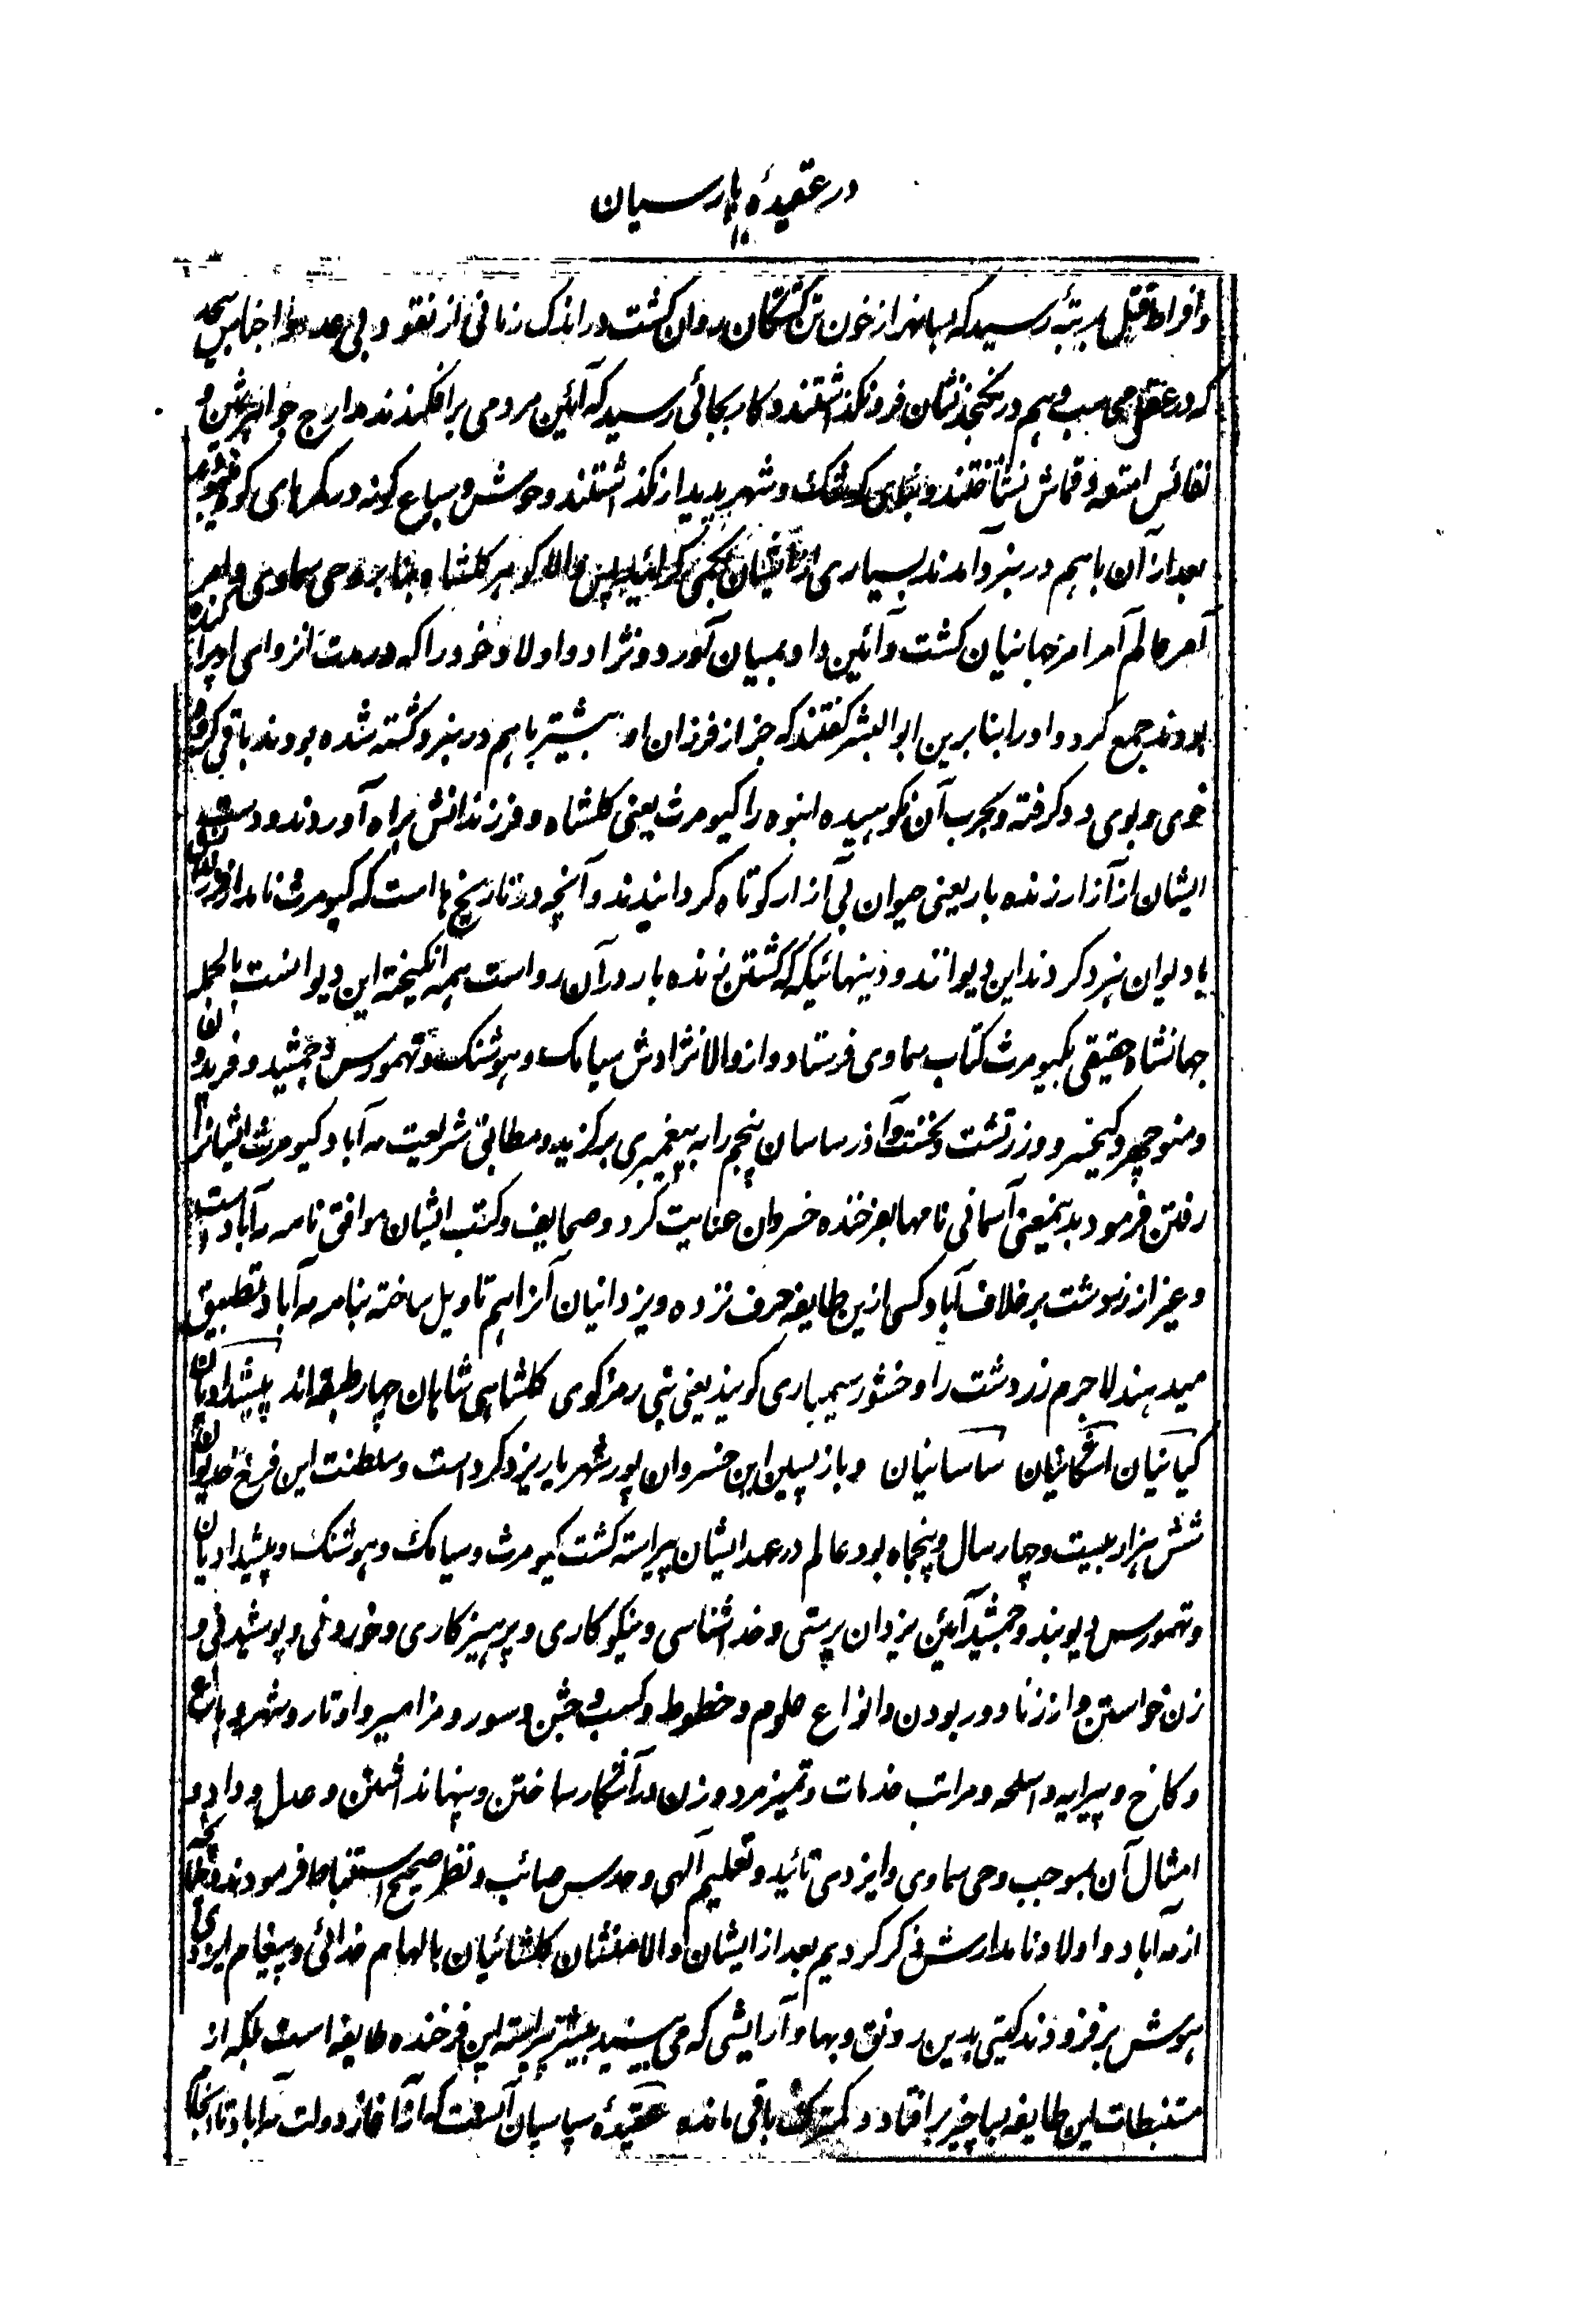 در عقیدۀ پارسیان
۱۰
و افراط قتل بمرتبۀ رسید که بسا نهر از خون تن کشتگان روان کشت در اندک زمانی از نقود بی عد و اجناس بیحد
که در عقل محاسب وهم در نکنجد نشان فرو نکذاشتند و کار بجائی رسید که آئین مردمی برافکندند مدارج جواهر ثمین و
نفائس امتعه و قماش نشناختند و بنای کوشک و شهر پدیدار نکذاشتند وحوش و سباع کونه در کمرهای کوه
بعد از آن باهم در نبرد آمدند بسیاری از ایشان کرائید پس والا کوهر کلشاه بنا بر وحی سماوی و امر
آمر عالم آمر امر جهانیان کشت و آئین داد بمیان آورد و نژاد و اولاد خود را که در مدت انزوای او پراکنده
بودند جمع کرد و او را بنا برین ابو البشر کفتند که جز از فرزندان او بیشتر باهم در نبرد کشته شده بودند باقی کروه
خوی و بوی دد کرفته و بحرب آن نکوهیده انبوه را کیومرث یعنی کلشاه و فرزندانش براه آوردند و دست
ایشان از آزار زنده بار یعنی حیوان بی آزار کوتاه کردانیدند و آنچه در تاریخ ها است که کیومرث نامدار و فرزندان
با دیوان نبرد کردند این دیوانند و دینهائیکه کشتن زنده بار در آن رواست همه انکیخته این دیوانست بالجمله
جهانشاه حقیقی بکیومرث کتاب سماوی فرستاد و از والا نژادش سیامک و هوشنک و تهمورس و جمشید و فریدون
و منوچهر و کیخسرو و زرتشت و آذر ساسان پنجم را به پیغمبری برکزید و مطابق شریعت مه آباد کیومرث ایشانرا
رفتن فرمود بدینمعنی آسمانی نامها بفرخنده خسروان عنایت کرد و صحایف و کتب ایشان موافق نامه مه آباد است
و غیر از زردشت بر خلاف آباد کسی ازین طایفه حرف نزده و یزدانیان آنرا هم تاویل ساخته بنامه مه آباد تطبیق
میدهند لاجرم زردشت را وخشور سیمباری کویند یعنی نبی رمزکوی کلشاهی شاهان چهار طبقه اند پیشدادیان
کیانیان اشکانیان ساسانیان و بازپسین این خسروان پور شهریار یزدکرد است و سلطنت این فرخ خدیوان
شش هزار بیست و چهار سال و پنجماه بود عالم در عهد ایشان پیراسته کشت کیومرث و سیامک و هوشنک و پیشدادیان
و تهمورس دیوبند و جمشید آئین یزدان پرستی و خداشناسی و نیکوکاری و پرهیزکاری و خوردنی و پوشیدنی و
زن خواستن و از زنا دور بودن و انواع علوم و خطوط و کسب و جشن و سور و مزامیر و اوتار و شهر و باغ
و کاخ و پیرایه و اسلحه و مراتب خدمات و تمیز مرد و زن در آشکار ساختن و پنهانداشتن و عدل و داد و
امثال آن بموجب وحی سماوی و ایزدی تائید و تعلیم الهی و حدس صائب و نظر صحیح استنباط فرمودند
از مه آباد و اولاد نامدارش ذکر کردیم بعد از ایشان والا منشان کلشائیان بالهام خدائی و پیغام ایزدی
هوش برفزودند کیتی بدین رونق و بها و آرایشی که می بینید بیشتر پیراسته این فرخنده طایفه است بلکه از
مستنبطات این طایفه بسا چیز برافتاد و کمترک باقی مانده عقیدۀ سپاسیان آنست که از آغاز دولت مه آباد تا انجام